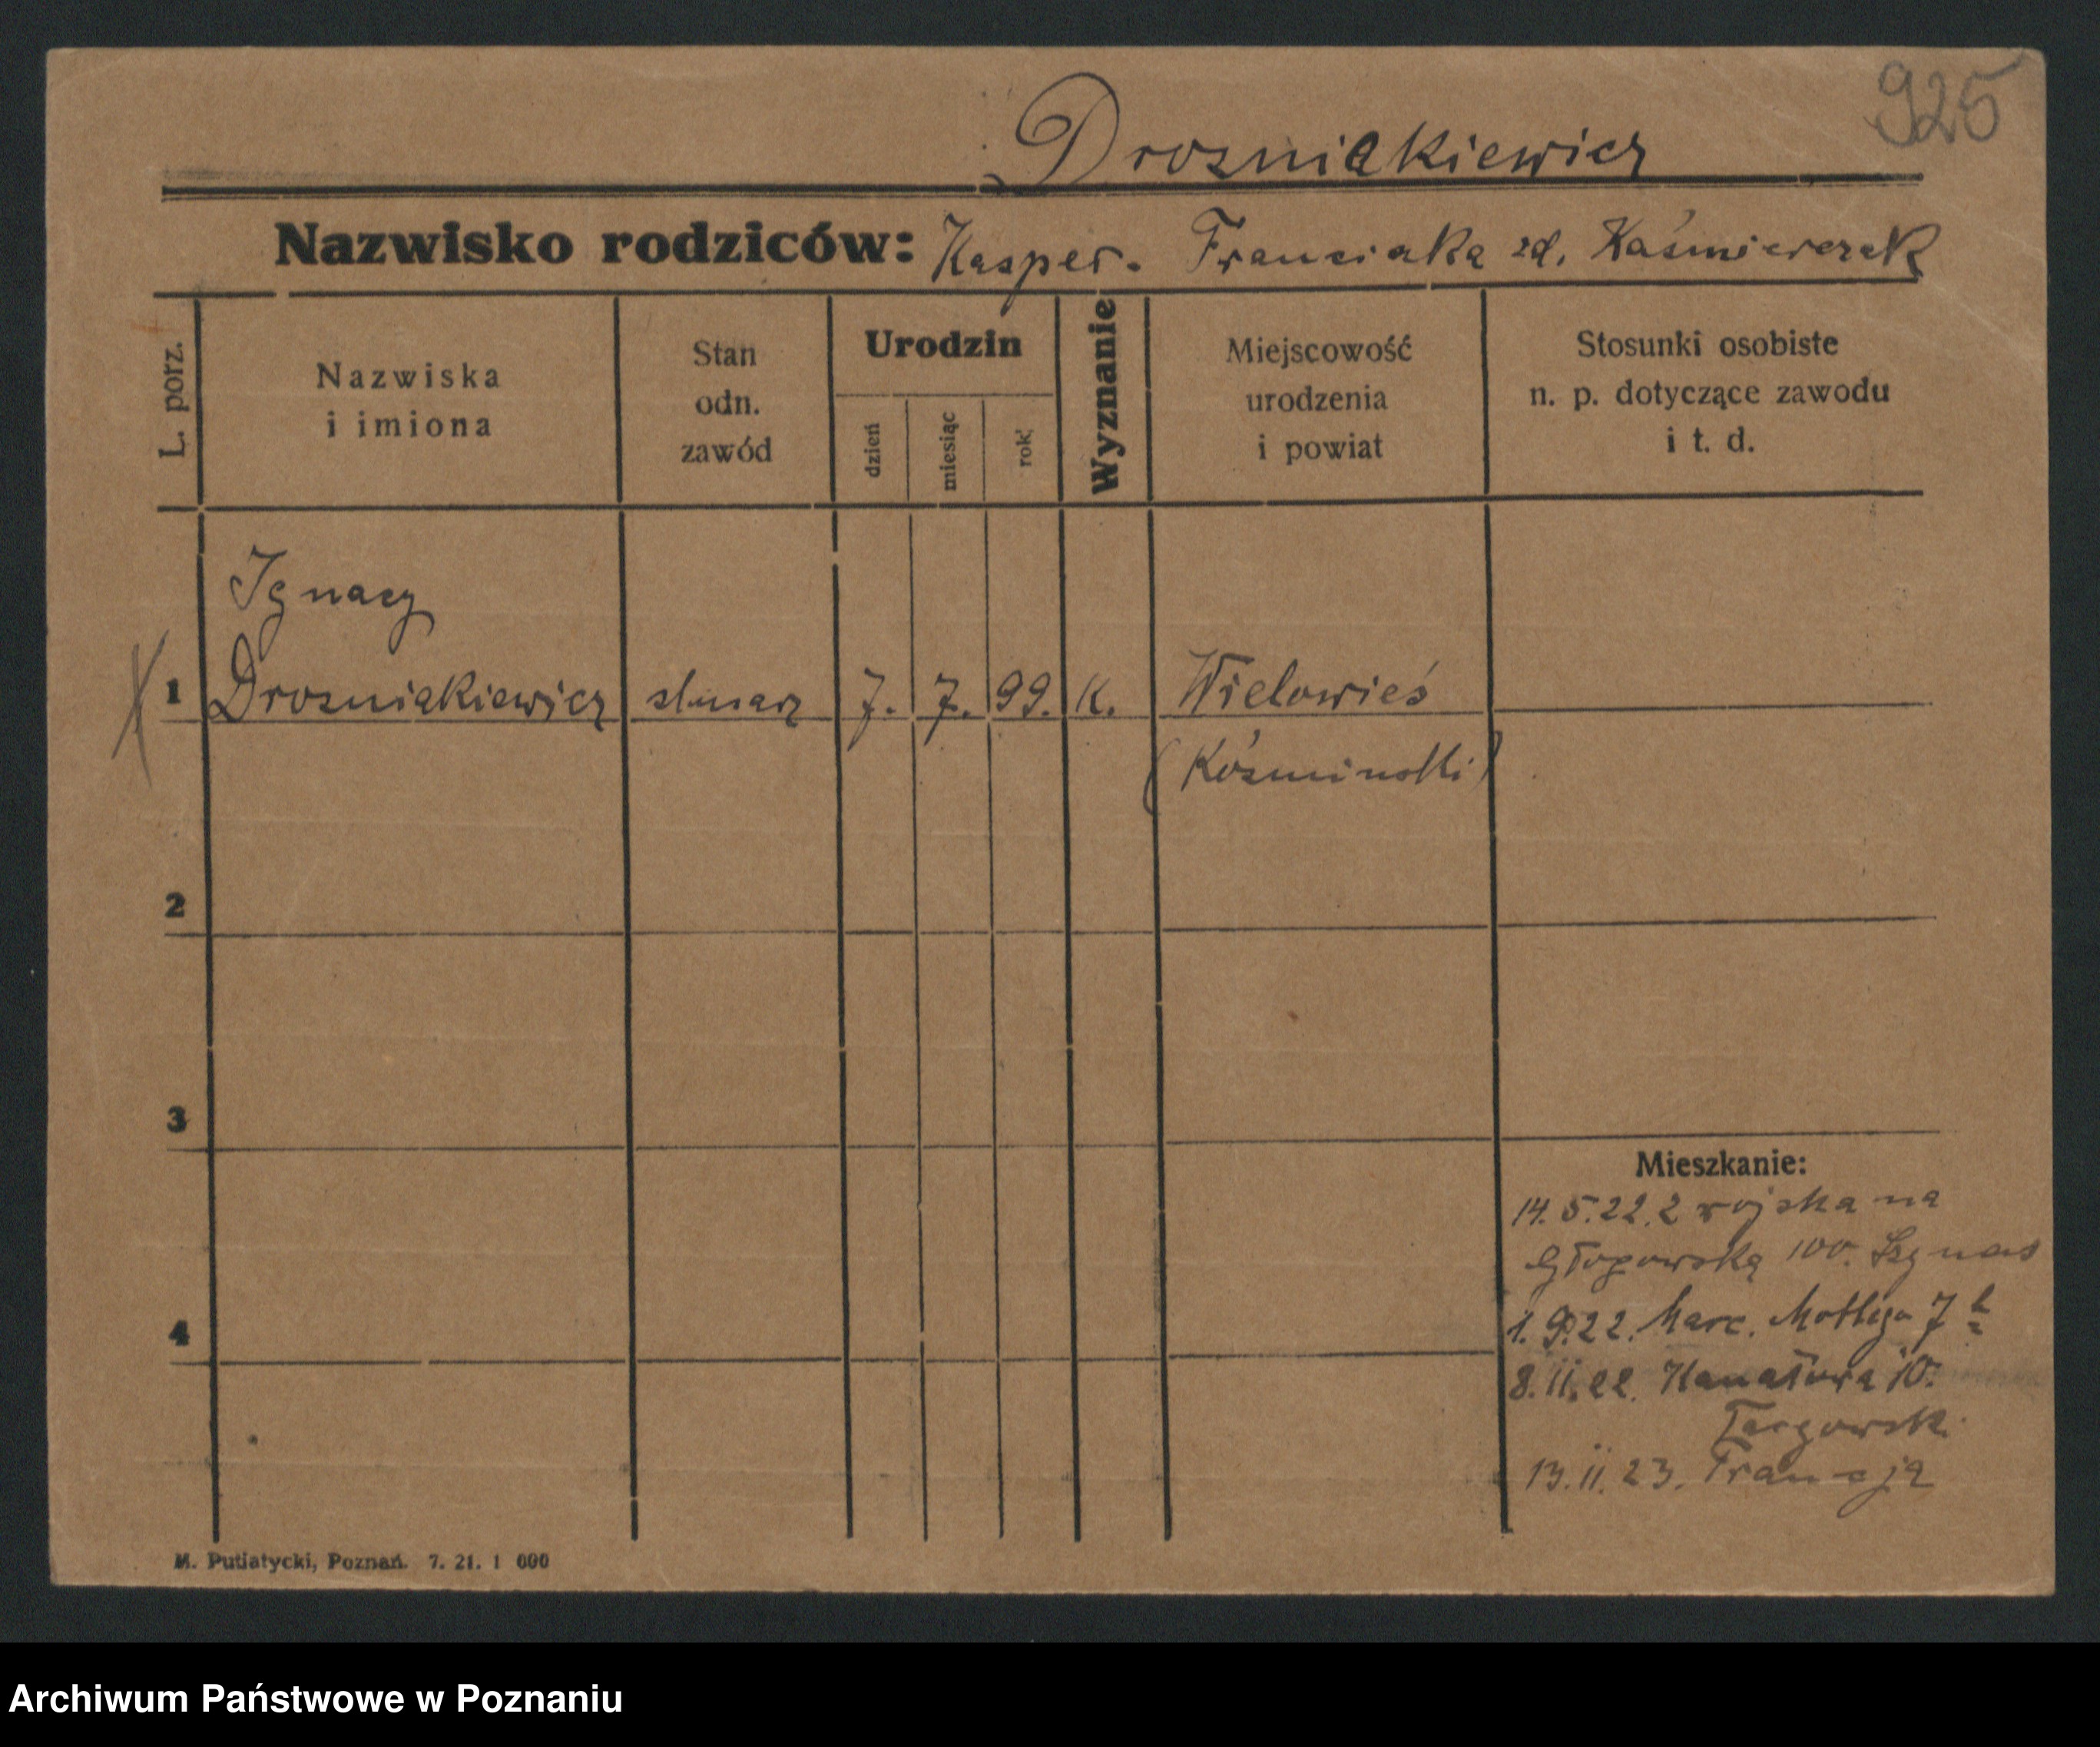 925
Drozniakiewicz
Nazwisko rodziców: Kasper. Franciszka zd. Kaźmierczak
L. porz.
Nazwiska
i imiona
Stan
odn.
zawód
Urodzin
dzień
miesiąc
rok
Wyznanie
Miejscowość
urodzenia
i powiat
Stosunki osobiste
n. p. dotyczące zawodu
i t. d.
Ignacy
1 Drozniakiewicz ślusarz 7. 7. 99. K. Wielowieś
(Koźminski)
2
3
4
Mieszkanie:
14.5.22. z wojska na
Głogowską 100.
1.9.22. Marc. Mottego 7
8.11.22. Kanałowa 10.
Targowsk.
13.11.23. Francja
M. Putiatycki, Poznań. 7. 21. 1 000
Archiwum Państwowe w Poznaniu